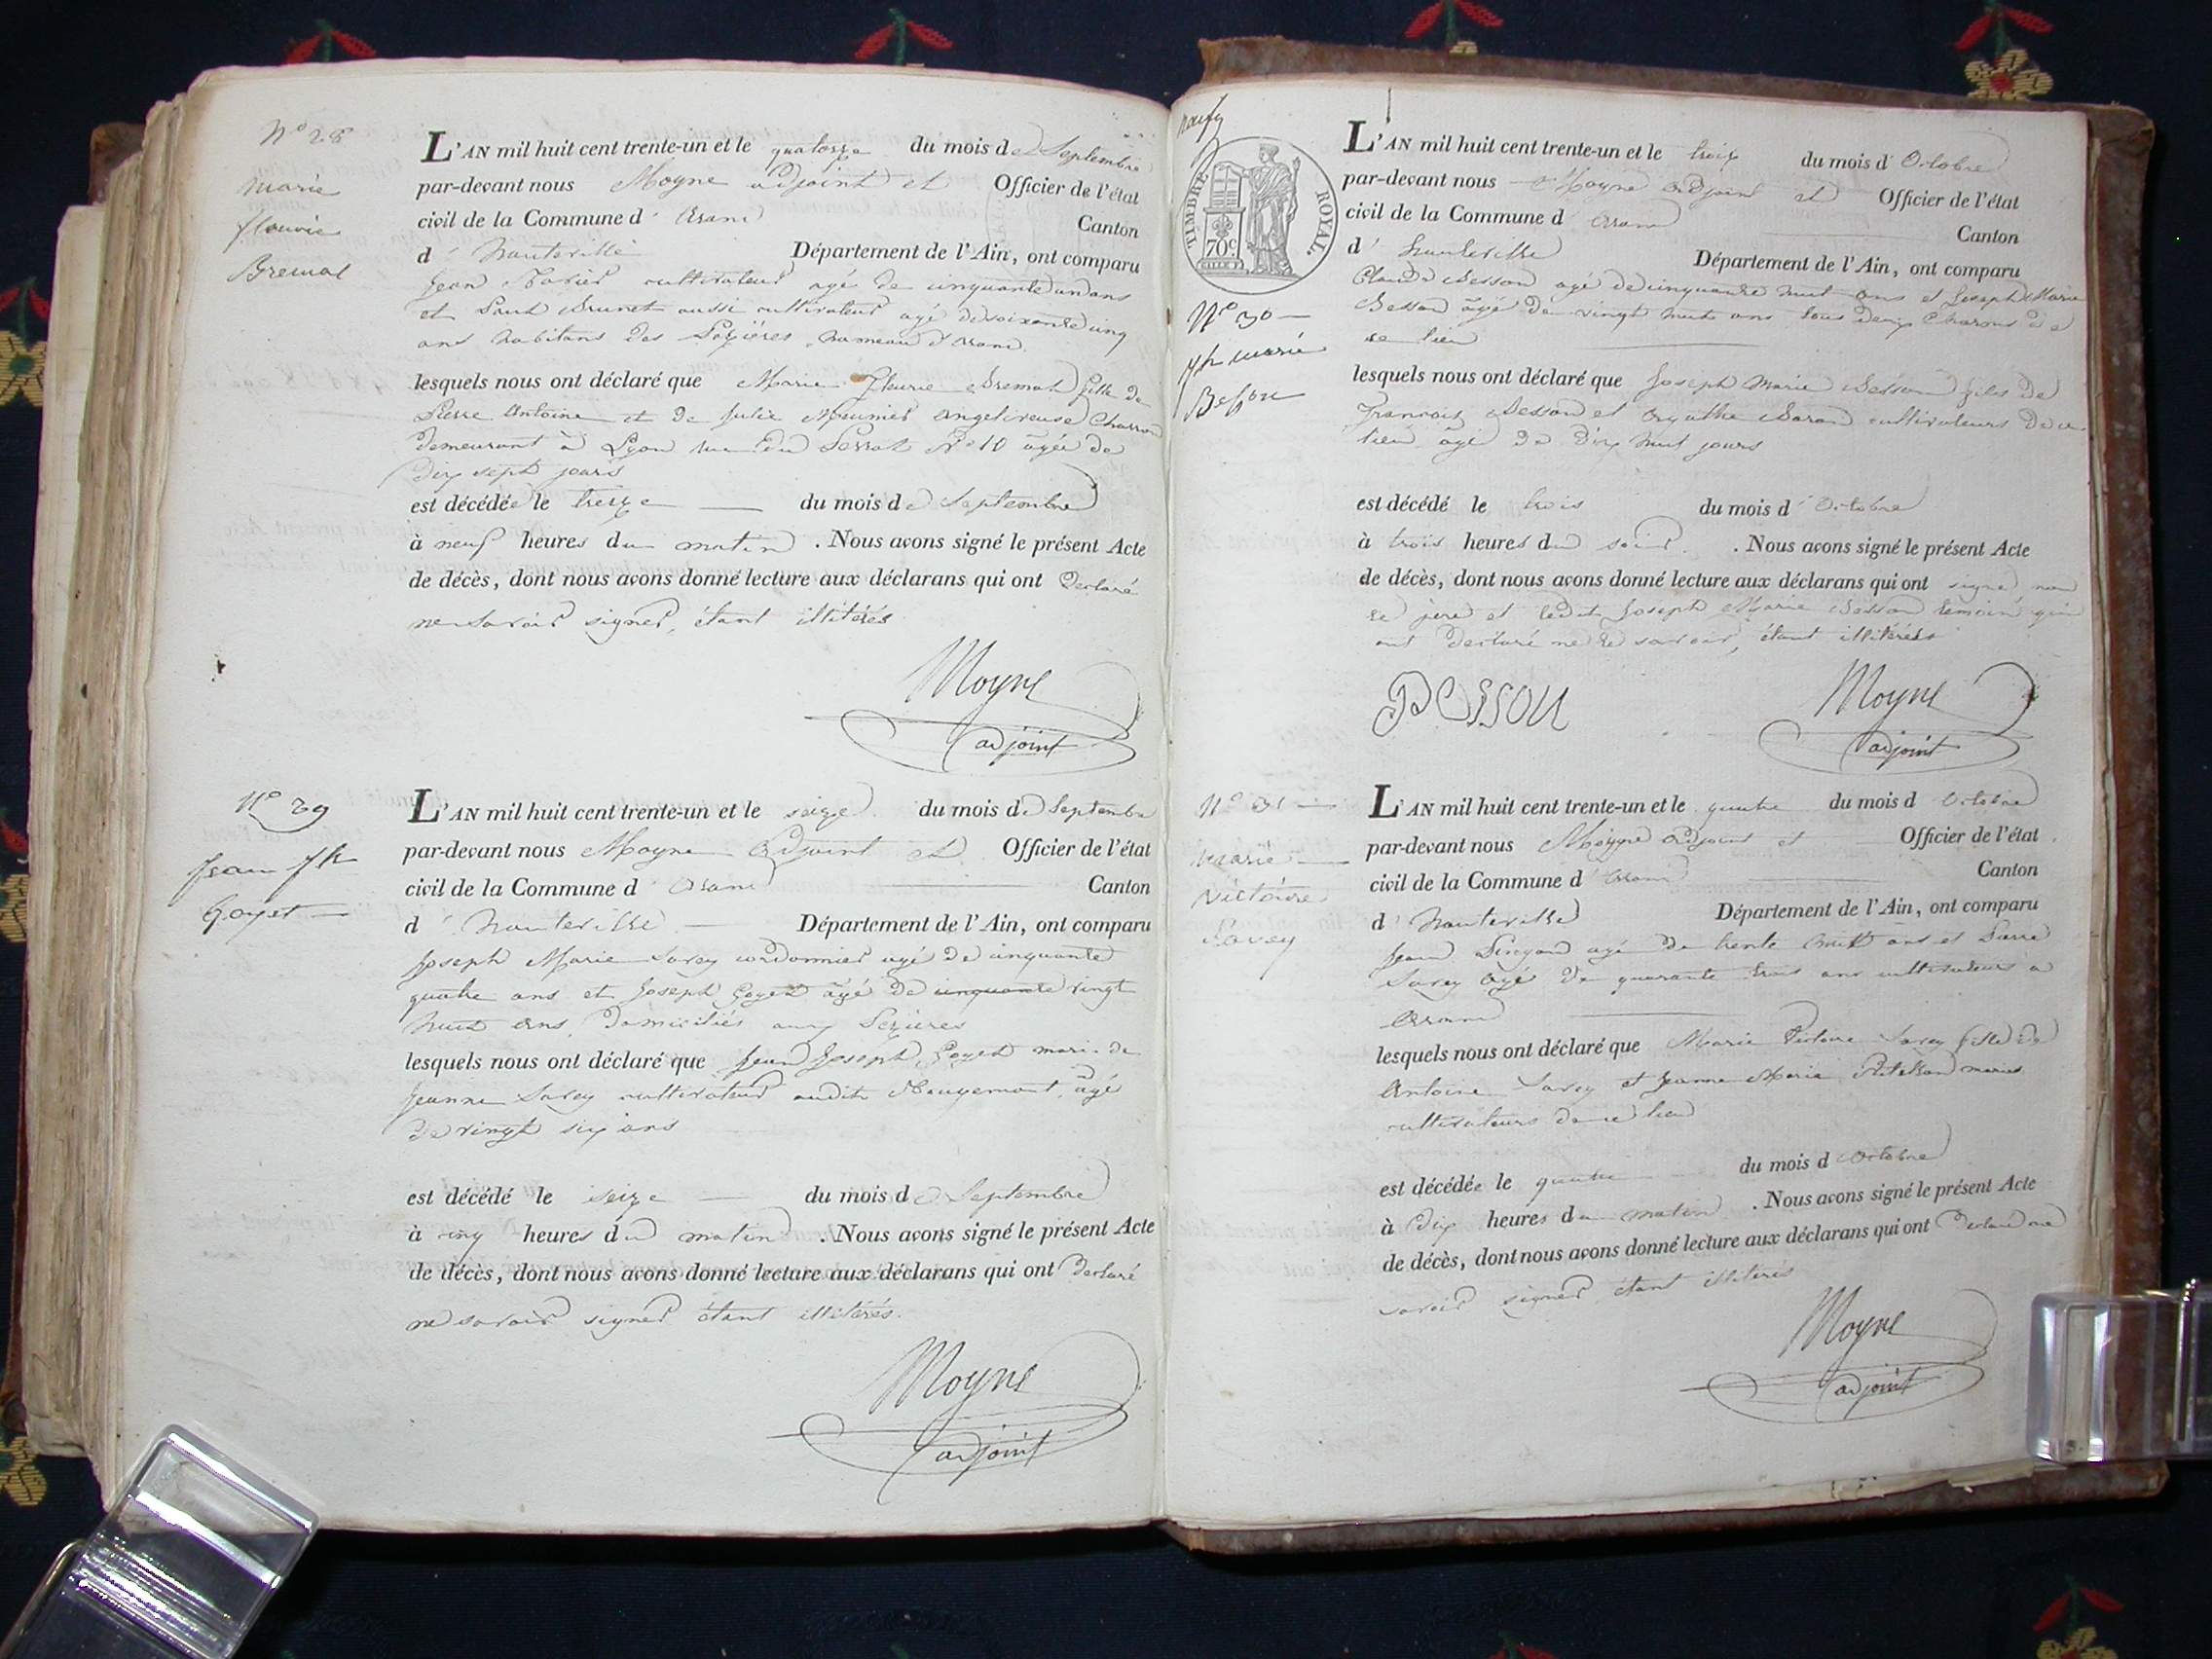 N° 28
Marie
fleurie
Bremal
L'AN mil huit cent trente-un et le quatorze du mois de Septembre
par-devant nous Moyne adjoint et Officier de l'état
civil de la Commune d' Aranc Canton
d' hauteville Département de l'Ain, ont comparu
Jean Tavier cultivateur agé de cinquante un ans
et Paul Brunet aussi cultivateur agé de soixante cinq
ans habitans des Pezières hameau d'Aranc
lesquels nous ont déclaré que Marie Fleurie Bremal fille de
Pierre Antoine et de Julie Meunier Charron
demeurant à Lyon rue du Perrat N° 10 âgée de
dix sept jours
est décédée le treize du mois de Septembre
à neuf heures du matin . Nous avons signé le présent Acte
de décès, dont nous avons donné lecture aux déclarans qui ont déclaré
ne savoir signer, étant illitérés
Moyne
adjoint
N° 29
Jean Jh
Goyet
L'AN mil huit cent trente-un et le seize du mois de Septembre
par-devant nous Moyne Adjoint et Officier de l'état
civil de la Commune d' Aranc Canton
d' hauteville Département de l'Ain, ont comparu
Joseph Marie Savey cordonnier agé de cinquante
quatre ans et Joseph Goyet âgé de cinquante vingt
huit ans domiciliés aux Pezières
lesquels nous ont déclaré que Jean Joseph Goyet mari de
Jeanne Savey cultivateur audit Rougemont, âgé
de vingt six ans
est décédé le seize du mois de Septembre
à cinq heures du matin . Nous avons signé le présent Acte
de décès, dont nous avons donné lecture aux déclarans qui ont déclaré
ne savoir signer étant illitérés.
Moyne
adjoint
TIMBRE ROYAL
70c
N° 30
Jh marie
Besson
L'AN mil huit cent trente-un et le trois du mois d' Octobre
par-devant nous Moyne Adjoint et Officier de l'état
civil de la Commune d' Aranc Canton
d' hauteville Département de l'Ain, ont comparu
Claude Besson agé de cinquante huit ans et Joseph Marie
Besson âgé de vingt huit ans tous deux Charons de
ce lieu
lesquels nous ont déclaré que Joseph Marie Besson fils de
François Besson et Agathe Savey cultivateurs de ce
lieu âgé de dix huit jours
est décédé le trois du mois d' Octobre
à trois heures du soir . Nous avons signé le présent Acte
de décès, dont nous avons donné lecture aux déclarans qui ont signé non
le père et ledit Joseph Marie Besson temoin qui
ont declaré ne le savoir, étant illitérés
BESSON
Moyne
adjoint
N° 31
Marie
Victoire
Savey
L'AN mil huit cent trente-un et le quatre du mois d' Octobre
par-devant nous Moyne Adjoint et Officier de l'état
civil de la Commune d' Aranc Canton
d' hauteville Département de l'Ain, ont comparu
Jean Pingon agé de trente huit ans et Pierre
Savey âgé de quarante trois ans cultivateurs a
Aranc
lesquels nous ont déclaré que Marie Victoire Savey fille de
Antoine Savey et Jeanne Marie mariés
cultivateurs de ce lieu
est décédée le quatre du mois d' Octobre
à dix heures du matin . Nous avons signé le présent Acte
de décès, dont nous avons donné lecture aux déclarans qui ont déclaré ne
savoir signer étant illitérés
Moyne
adjoint